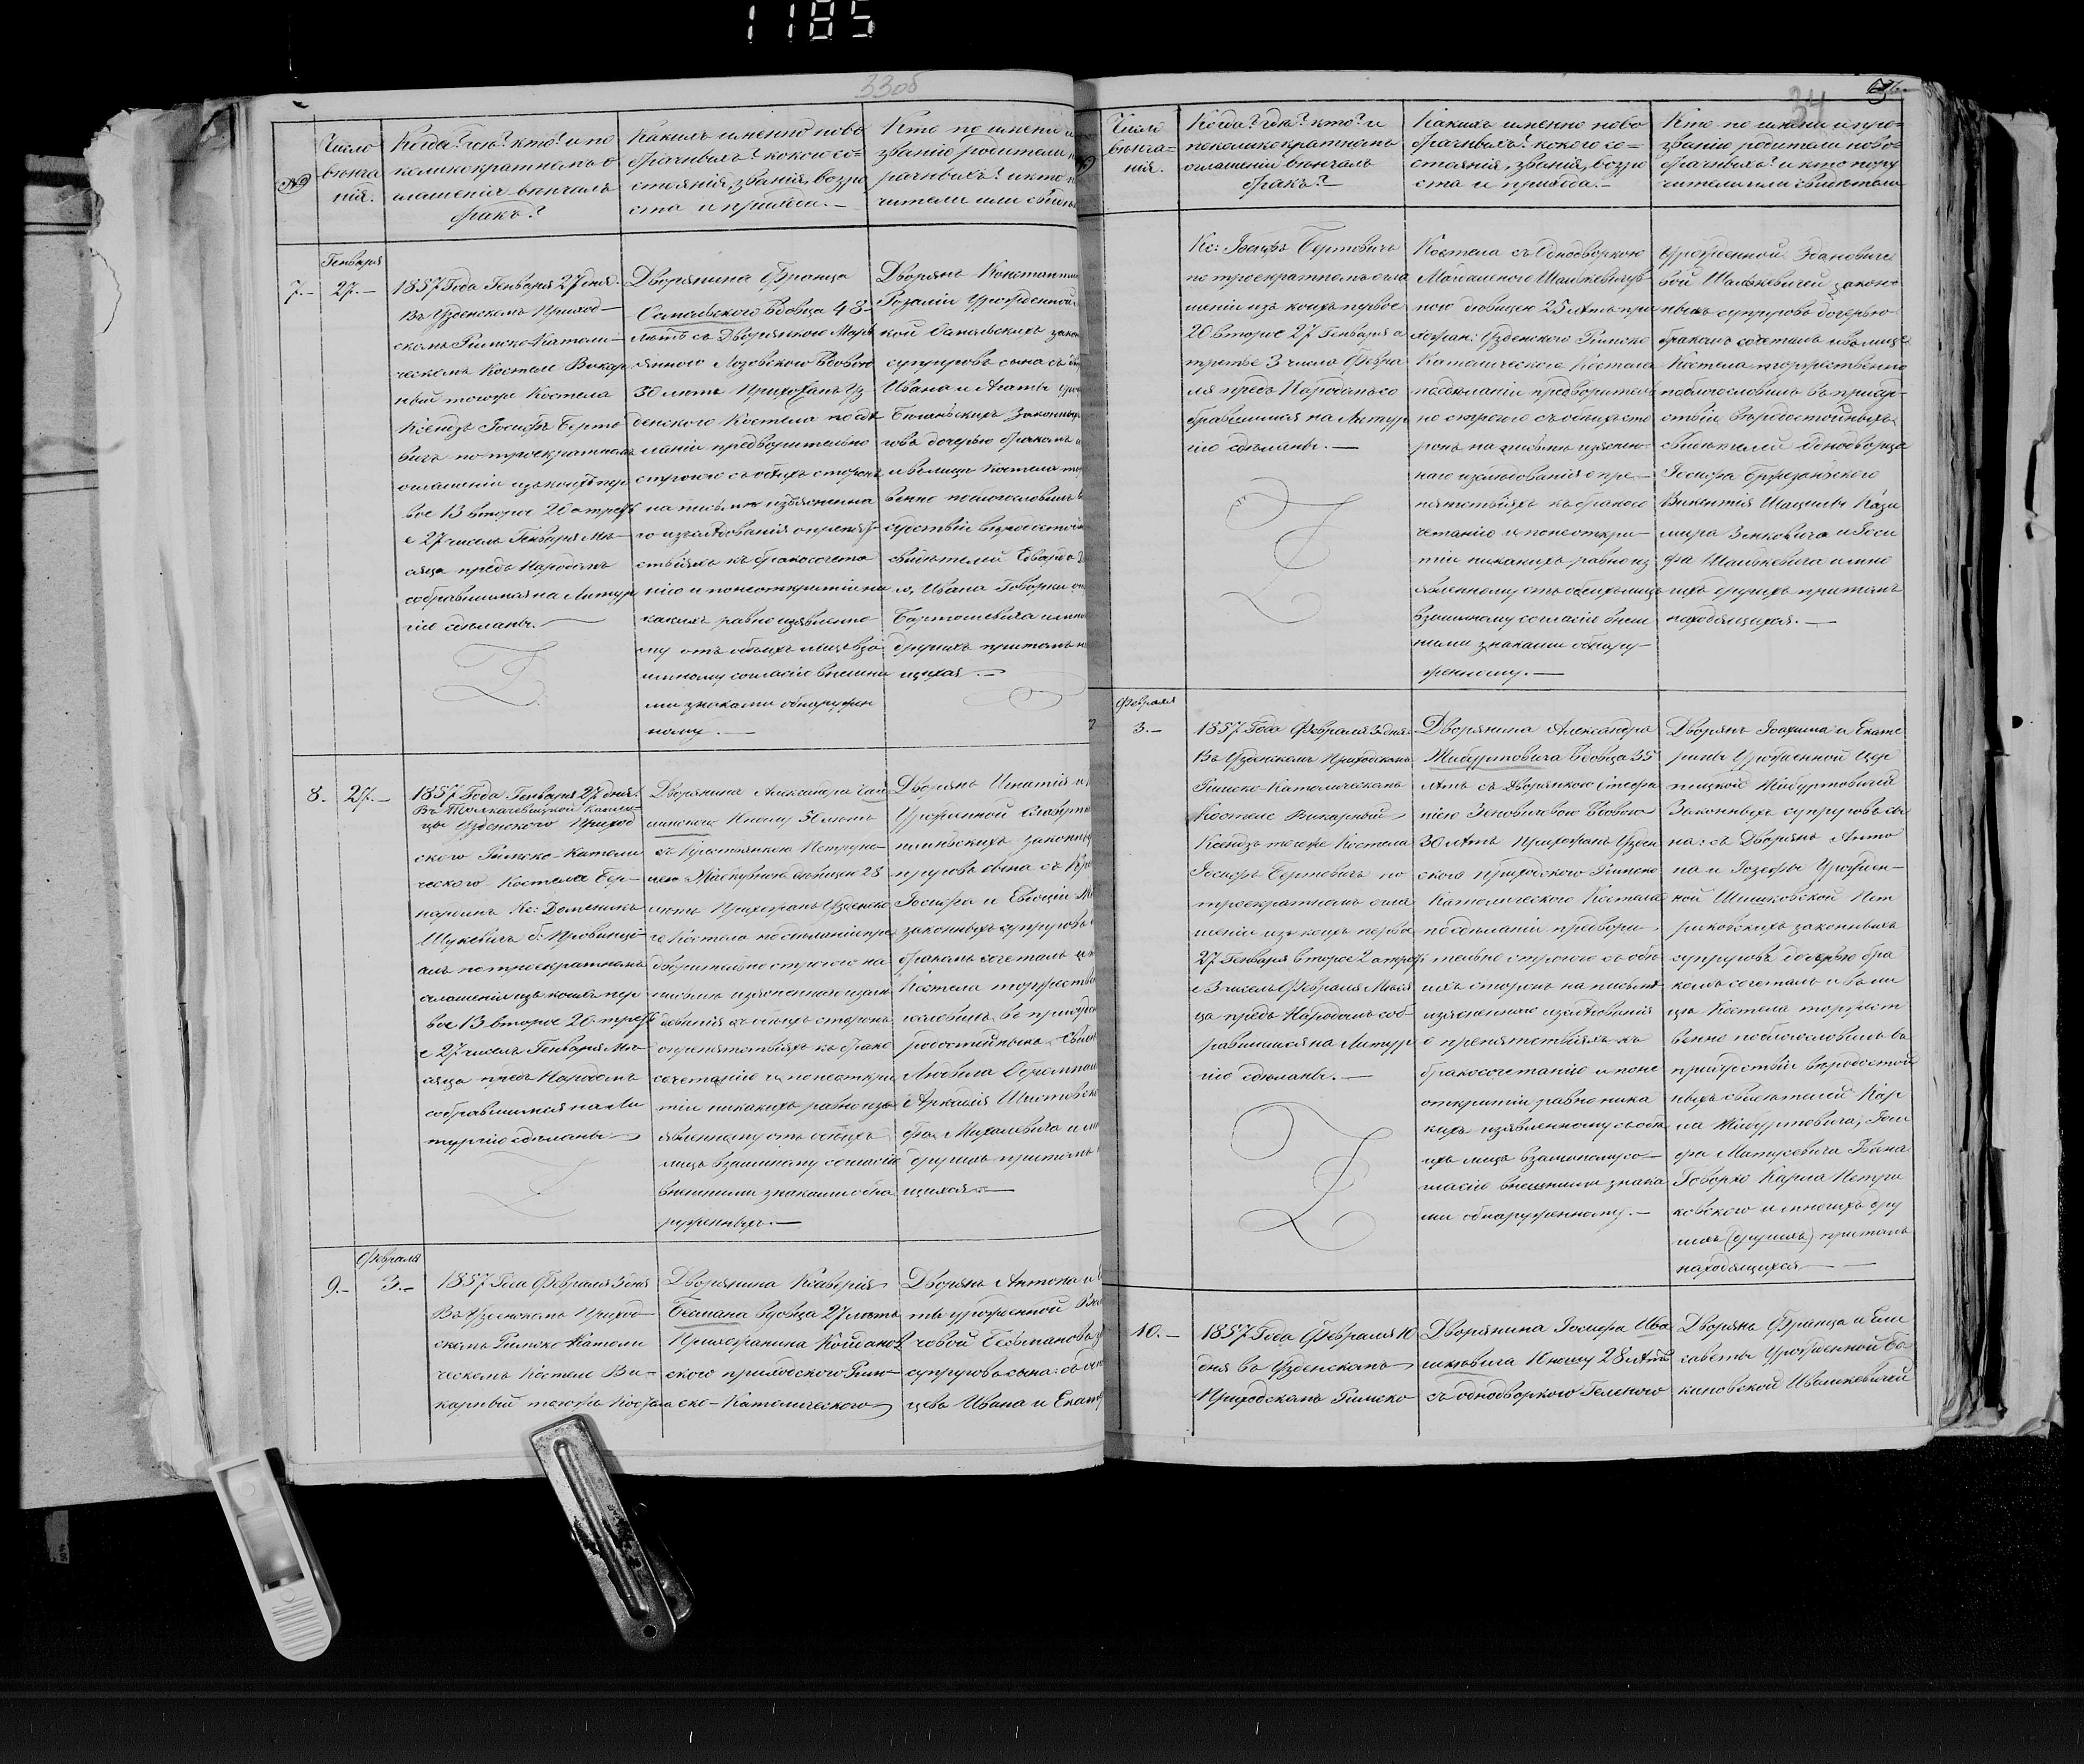 1185
33об
№
Число
вѣнча
нія.
Когда? гдѣ? кто? и по
коликократномъ о
глашенія вѣнчалъ
бракъ?
Какихъ именно ново
брачныхъ? какого со-
стоянія, званія, возра
ста и прихода.—
Кто по имени и
званію родители
рачныхъ? и кто
чители или свидѣ
Генваря
7.— 27.—
1857 Года Генваря 27 дня.
Въ Узденскомъ Приход-
скомъ Римско-Католи-
ческомъ Костелѣ Викар
ный тогоже Костела
Ксендзъ Іосифъ Берто
вичъ по троекратномъ
оглашеніи изъ коихъ пер
вое 13 второе 20 а треть
е 27 чиселъ Генваря Мѣ-
сяца предъ Народомъ
собравшимся на Литур
гію сдѣланы.—
Дворянина Франца
вдовца 48
лѣтъ съ Дворянкою Марі
янною Лозовскою вдовою
30 лѣтъ Прихожанъ Уз
денского Костела по сдѣ
ланіи предворительно
строгого съ обѣихъ сторонъ
на письмѣ изъясненна
го изслѣдованія о препят-
ствіяхъ къ бракосочета
нію и по неоткрытіи ни
какихъ равно изявленно
му отъ обѣихъ лицъ вза
имному согласію внѣшни
ми знаками обнаружен
ному.—
Дворянъ Константина
Розаліи Урожденной
кой законн
супруговъ сына съ дво
Ивана и Агаты урож
законныхъ
говъ дочерью бракомъ
и въ лицѣ Костела тор
венно поблагословилъ в
сутствіи вѣродостой
свидѣтелей Едварда
Ивана Говорки
Бортошевича и мно
другихъ притомъ н
щихся.—
8. 27.—
1857 Года Генваря 27 дня.
Въ Каплы-
цы Узденского Приход
ского Римско-Католи
ческого Костела Бер-
нардинъ Кс: Доминикъ
Шукевичъ б: Провинці-
алъ по троекратномъ
оглашеніи изъ коихъ пер
вое 13 второе 20 треть
е 27 чиселъ Генваря Мѣ-
сяца предъ Народомъ
собравшимся на Ли
тургію сдѣланы—
Дворянина Александра
Юношу 30 лѣтъ
съ Крестьянкою Петруне-
лею дѣвицею 25
лѣтъ Прихожанъ Узденско
го Костела по сдѣланіи пре
дворительно строгого на
письмѣ изъясненного изслѣ
дованія съ обѣихъ сторонъ
о препятствіяхъ къ брако
сочетанію и по неоткры
тіи никакихъ равно изъ
явленному отъ обѣихъ
лицъ взаимному согласію
внѣшними знаками обна
руженныхъ.—
Дворянъ Игнатія и
Урожденной
законныхъ
пруговъ сына съ Кре
Іосифа и Евдокіи
законныхъ супруговъ
бракомъ сочеталъ и в
Костела торжество
гословилъ въ присутс
родостойныхъ свид
Людвика
Аркадія
фа Михалевича и м
другихъ притомъ
щихся.—
Февраля
9.— 3.—
1857 Года Февраля 3 дня
Въ Узденскомъ Приход-
скомъ Римско-Католи
ческомъ Костелѣ Ви-
карный тогожъ Костела
Дворянина Ксаверія
вдовца 27 лѣтъ
Прихожанина Койданов
ского приходского Рим-
ско-Католического
Дворянъ Антона и
ты урожденной
човой
супруговъ сына: съ одн
цевъ Ивана и Екат
34
№
Число
вѣнча-
нія.
Когда? гдѣ? кто? и
поколикократномъ
оглашеніи вѣнчалъ
бракъ?—
Какихъ именно ново
брачныхъ? какого со-
стоянія, званія, возра
ста и прихода.—
Кто по имени и про-
званію родители ново-
брачныхъ? и кто пору
чители или свидѣтели
Кс: Іосифъ Бертовичъ
по троекратномъ огла
шеніи изъ коихъ первое
20 второе 27 Генваря а
третье 3 числа Февра
ля предъ Народомъ со
бравшимся на Литур
гію сдѣланы.—
Костела съ Однодворкою
Шацкевичев
ною дѣвицею 25 лѣтъ при
хожан: Узденского Римско
Католического Костела
по сдѣланіи предворитель
но строгого съ обѣихъ сто
ронъ на письмѣ изъяснен-
ного изслѣдованія о пре-
пятствіяхъ къ бракосо
четанію и по неоткры-
тіи никакихъ равно из
явленному отъ обѣихъ лицъ
взаимному согласію внѣш
ними знаками обнару-
женному.—
Урожденной Зданович
вой закон-
ныхъ супруговъ дочерью
бракомъ сочеталъ и въ лицѣ
Костела торжественно
поблагословилъ въ присут-
ствіи вѣродостойныхъ
свидѣтелей Однодворца
Іосифа
Викентія Кази
мира Зенковича и Іоси
фа и мно
гихъ другихъ притомъ
находящихся.—
Февраля
3.—
1857 Года Февраля 3 дня
Въ Узденскомъ Приходскомъ
Римско-Католическомъ
Костелѣ Викарный
Ксендзъ тогоже Костела
Іосифъ Бертовичъ по
троекратномъ огла
шеніи изъ коихъ первое
27 Генваря второе 2 а треть
е 3 чиселъ Февраля Мѣся
ца предъ Народомъ соб-
равшимся на Литур
гію сдѣланы.—
Дворянина Александра
Жибуртовича вдовца 35
лѣтъ съ Дворянкою Стефа
ніею Зеновичевою вдовою
30 лѣтъ Прихожанъ Узден
ского приходского Римско
Католического Костела
по сдѣланіи предвори-
тельно строгого съ обѣ
ихъ сторонъ на письмѣ
изъясненного изслѣдованія
о препятствіяхъ къ
бракосочетанію и по не
открытіи равно ника
кихъ изъявленному съ обѣ
ихъ лицъ взаимному со-
гласію внѣшними знака
ми обнаруженному.—
Дворянъ Іоахима и Екате
рины Урожденной
Жибуртовичей
Законныхъ супруговъ сы
на: съ Дворянъ Анто
на и Іозефы Урожден-
ной Шишковской Пет
риковскихъ законныхъ
супруговъ дочерью бра
комъ сочеталъ и въ ли
цѣ Костела торжест
венно поблагословилъ въ
присутствіи вѣродостой
ныхъ свидѣтелей Кар
ла Жибуртовича, Іоси
фа Матусевича Ивана
Говорко Карла Петри
ковского и многихъ дру
гихъ (другихъ) притомъ
находящихся—
10.—
1857 Года Февраля 10
дня въ Узденскомъ
Приходскомъ Римско
Дворянина Іосифа Ива
шкевича Юношу 28 лѣтъ
съ однодворкою Геленою
Дворянъ Франца и Ели
саветы Урожденной
Ивашкевичей